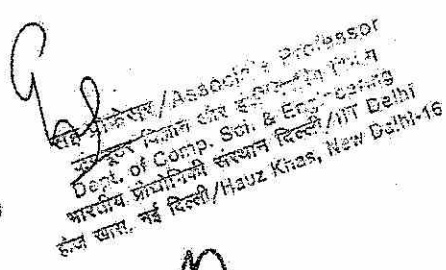 सह प्रोफेसर/Associate Professor
विज्ञान और
Dept. of Comp. Sci. & Engineering
भारतीय प्रौद्योगिकी संस्थान दिल्ली/IIT Delhi
हौज खास, नई दिल्ली/Hauz Khas, New Delhi-16